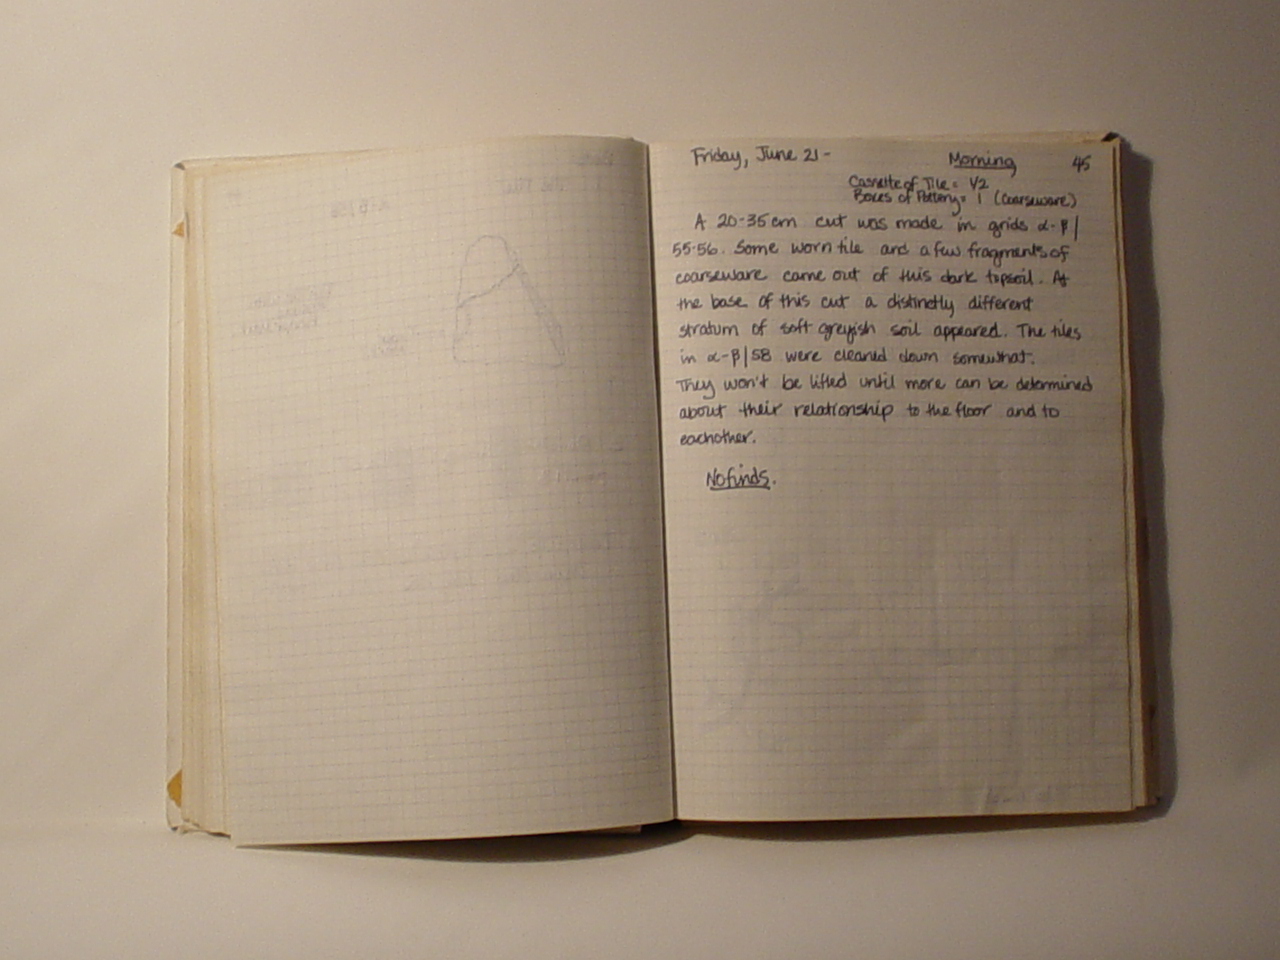 Friday, June 21- Morning 45
Cassette of Tile = 1/2
Boxes of Pottery = 1 (Coarseware)
A 20-35cm cut was made in grids α-β/
55-56. Some worn tile and a few fragments of
coarseware came out of this dark topsoil. At
the base of this cut a distinctly different
stratum of soft greyish soil appeared. The tiles
in α-β/58 were cleaned down somewhat.
They won't be lifted until more can be determined
about their relationship to the floor and to
eachother.
No finds.